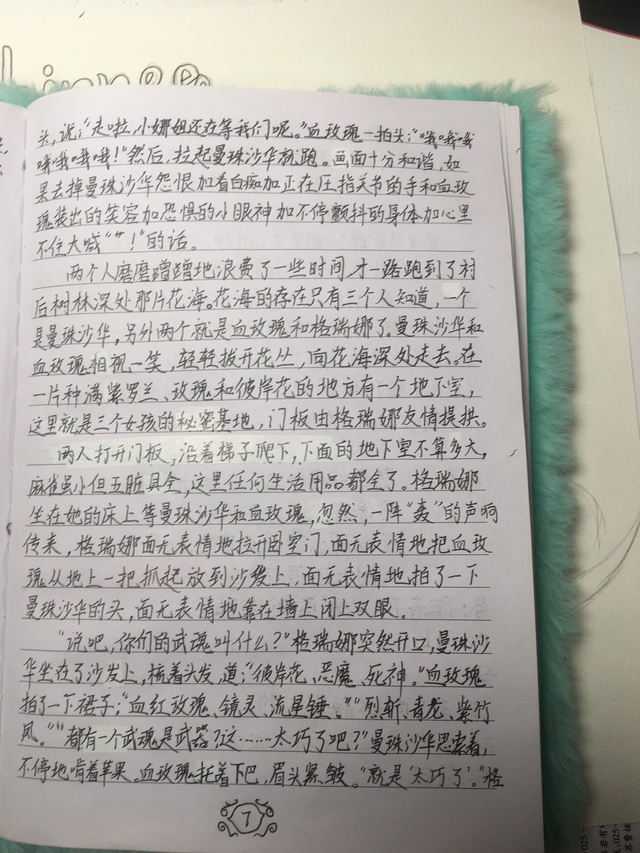 头，说："走啦，小娜姐还在等我们呢。"血玫瑰一拍头："哦哦哦
哦哦哦哦！"然后，拉起曼珠沙华就跑。画面十分和谐，如
果去掉曼珠沙华怨恨加看白痴加正在压指关节的手和血玫
瑰装出的笑容加恐惧的小眼神加不停颤抖的身体加心里
不住大喊"艹！"的话。
两个人磨磨蹭蹭地浪费了一些时间，才一路跑到了村
后树林深处那片花海。花海的存在只有三个人知道，一个
是曼珠沙华，另外两个就是血玫瑰和格瑞娜了。曼珠沙华和
血玫瑰相视一笑，轻轻拔开花丛，向花海深处走去。在
一片种满紫罗兰、玫瑰和彼岸花的地方有一个地下室，
这里就是三个女孩的秘密基地，门板由格瑞娜友情提拱。
两人打开门板，沿着梯子爬下，下面的地下室不算多大，
麻雀虽小但五脏具全，这里任何生活用品都全了。格瑞娜
坐在她的床上等曼珠沙华和血玫瑰，忽然，一阵"轰"的声响
传来，格瑞娜面无表情地拉开卧室门，面无表情地把血玫
瑰从地上一把抓起放到沙发上，面无表情地拍了一下
曼珠沙华的头，面无表情地靠在墙上闭上双眼。
"说吧，你们的武魂叫什么？"格瑞娜突然开口，曼珠沙
华坐在了沙发上，梳着头发，道："彼岸花、恶魔、死神。"血玫瑰
拍了一下裙子："血红玫瑰、镜灵、流星锤。""烈斩、青龙、紫竹
凤。""都有一个武魂是武器？这……太巧了吧？"曼珠沙华思索着，
不停地啃着苹果。血玫瑰托着下巴，眉头紧皱。"就是'太巧了'。"格
7